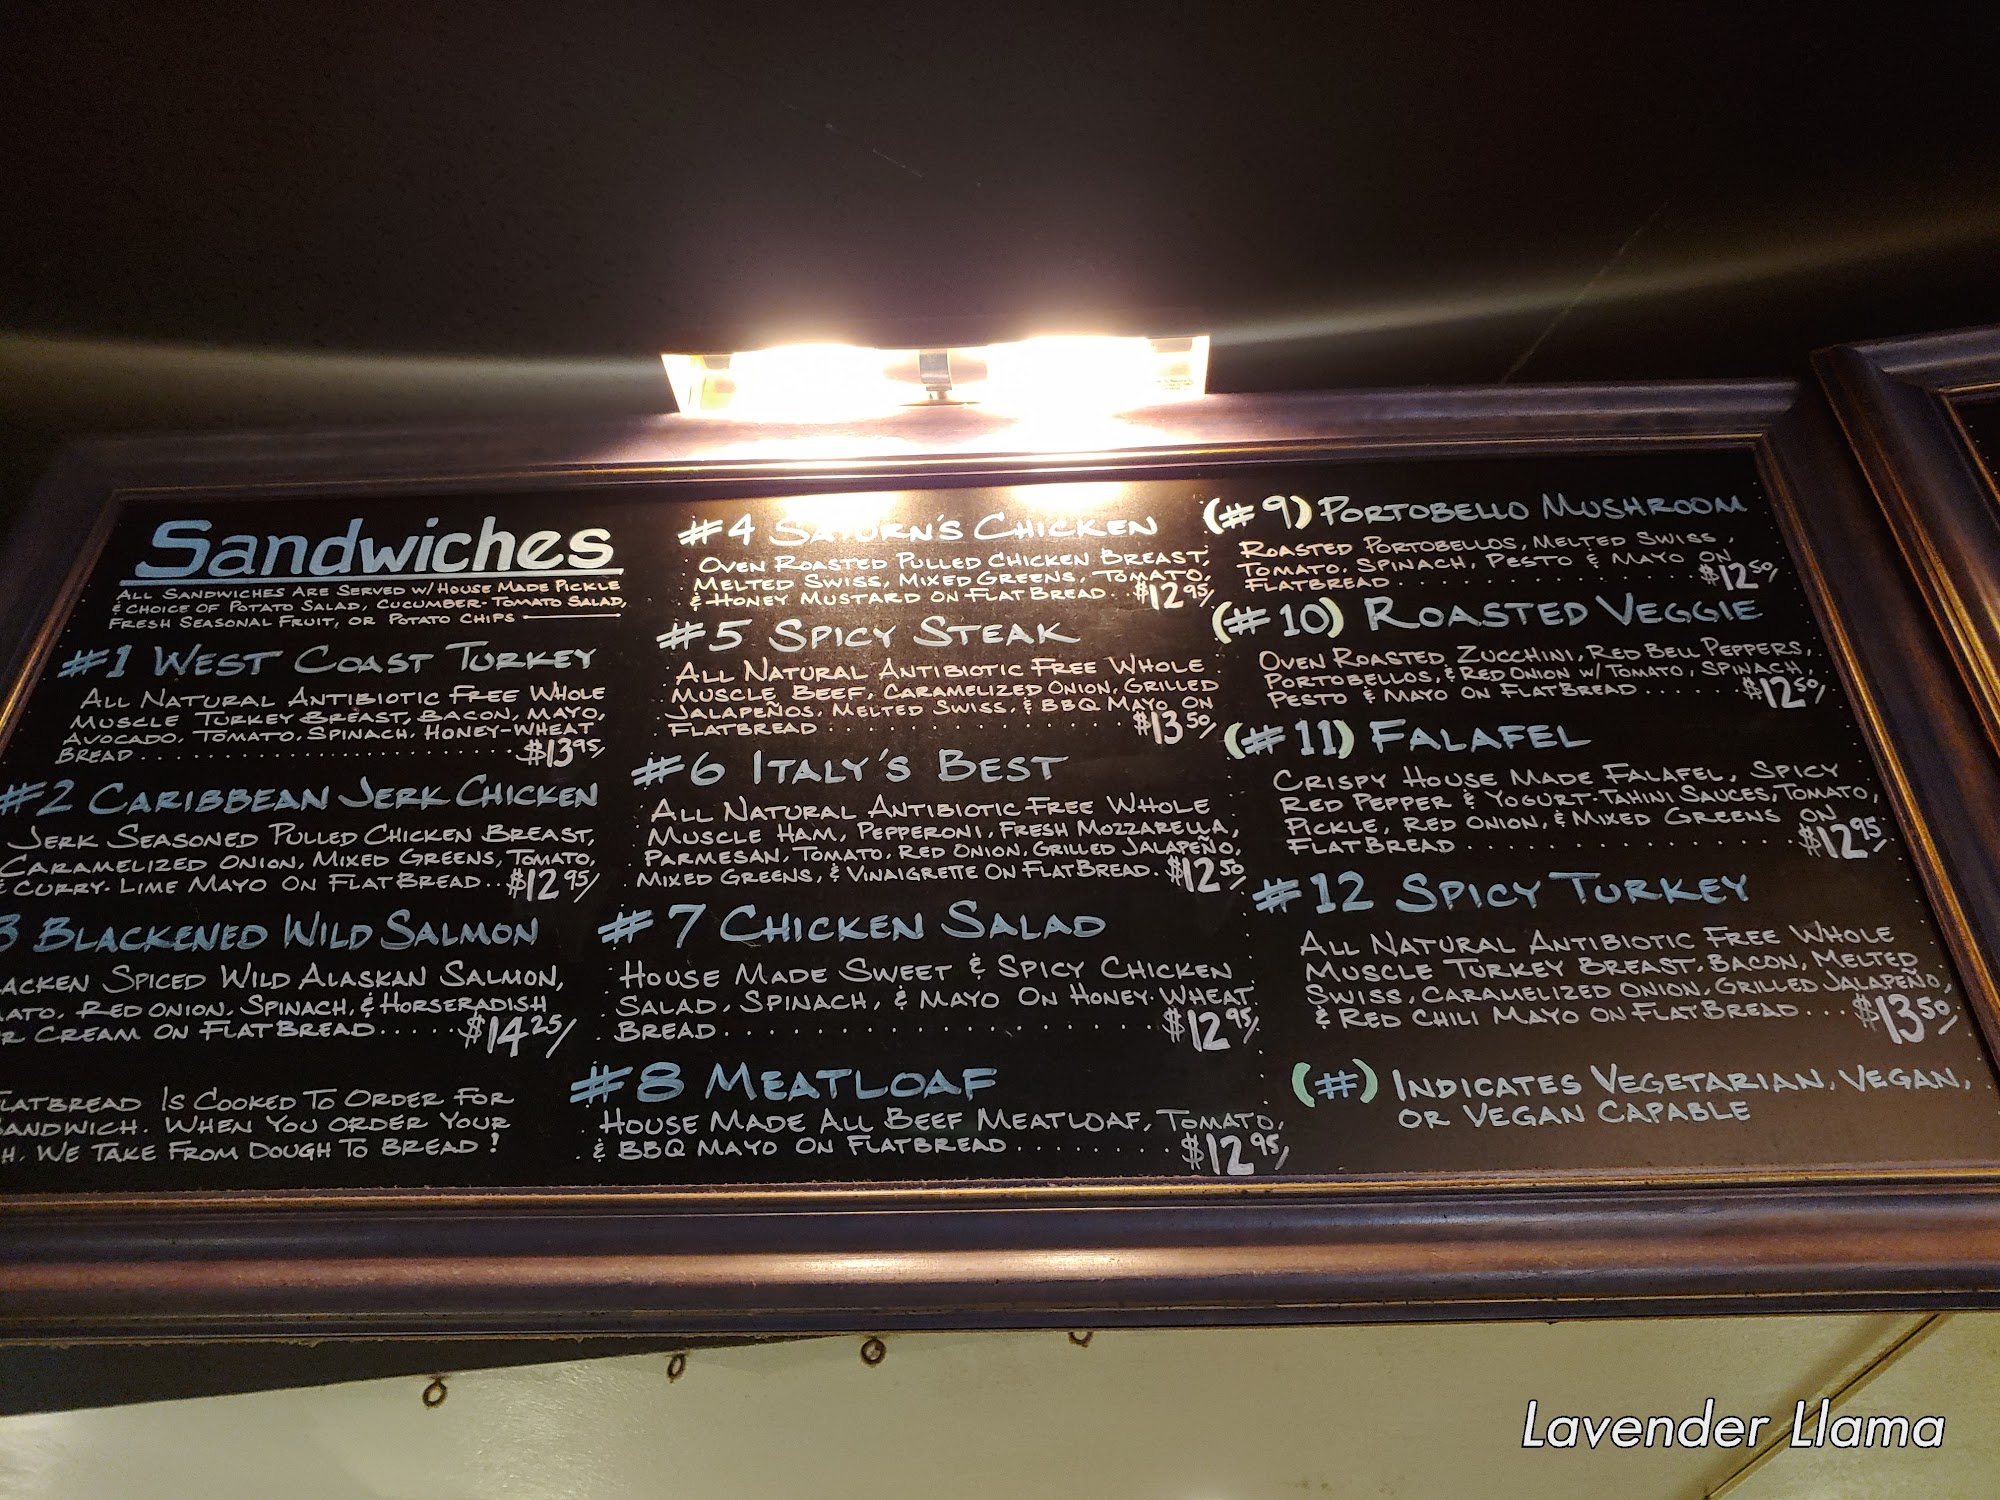 Sandwiches
ALL SANDWICHES ARE SERVED W/ HOUSE MADE PICKLE
& CHOICE OF POTATO SALAD, CUCUMBER-TOMATO SALAD,
FRESH SEASONAL FRUIT, OR POTATO CHIPS
#1 WEST COAST TURKEY
ALL NATURAL ANTIBIOTIC FREE WHOLE
MUSCLE TURKEY BREAST, BACON, MAYO,
AVOCADO, TOMATO, SPINACH, HONEY-WHEAT
BREAD . . . . . . . . . . . . . . . . . . . . $13.95/
#2 CARIBBEAN JERK CHICKEN
JERK SEASONED PULLED CHICKEN BREAST,
CARAMELIZED ONION, MIXED GREENS, TOMATO,
& CURRY-LIME MAYO ON FLATBREAD . . $12.95/
3 BLACKENED WILD SALMON
ACKEN SPICED WILD ALASKAN SALMON,
ATO, RED ONION, SPINACH, & HORSERADISH
R CREAM ON FLATBREAD . . . . . $14.25/
LATBREAD IS COOKED TO ORDER FOR
ANDWICH. WHEN YOU ORDER YOUR
H, WE TAKE FROM DOUGH TO BREAD!
#4 SATURN'S CHICKEN
OVEN ROASTED PULLED CHICKEN BREAST,
MELTED SWISS, MIXED GREENS, TOMATO,
& HONEY MUSTARD ON FLATBREAD . . $12.95/
#5 SPICY STEAK
ALL NATURAL ANTIBIOTIC FREE WHOLE
MUSCLE BEEF, CARAMELIZED ONION, GRILLED
JALAPEÑOS, MELTED SWISS, & BBQ MAYO ON
FLATBREAD . . . . . . . . . . . . . . . . $13.50/
#6 ITALY'S BEST
ALL NATURAL ANTIBIOTIC FREE WHOLE
MUSCLE HAM, PEPPERONI, FRESH MOZZARELLA,
PARMESAN, TOMATO, RED ONION, GRILLED JALAPEÑO,
MIXED GREENS, & VINAIGRETTE ON FLATBREAD . $12.50/
#7 CHICKEN SALAD
HOUSE MADE SWEET & SPICY CHICKEN
SALAD, SPINACH, & MAYO ON HONEY-WHEAT
BREAD . . . . . . . . . . . . . . . . . . . . $12.95/
#8 MEATLOAF
HOUSE MADE ALL BEEF MEATLOAF, TOMATO,
& BBQ MAYO ON FLATBREAD . . . . . . . . $12.95/
(#9) PORTOBELLO MUSHROOM
ROASTED PORTOBELLOS, MELTED SWISS,
TOMATO, SPINACH, PESTO & MAYO ON
FLATBREAD . . . . . . . . . . . . . . . . $12.50/
(#10) ROASTED VEGGIE
OVEN ROASTED, ZUCCHINI, RED BELL PEPPERS,
PORTOBELLOS, & RED ONION W/ TOMATO, SPINACH,
PESTO & MAYO ON FLATBREAD . . . . . . $12.50/
(#11) FALAFEL
CRISPY HOUSE MADE FALAFEL, SPICY
RED PEPPER & YOGURT-TAHINI SAUCES, TOMATO,
PICKLE, RED ONION, & MIXED GREENS ON
FLATBREAD . . . . . . . . . . . . . . . . $12.95/
#12 SPICY TURKEY
ALL NATURAL ANTIBIOTIC FREE WHOLE
MUSCLE TURKEY BREAST, BACON, MELTED
SWISS, CARAMELIZED ONION, GRILLED JALAPEÑO,
& RED CHILI MAYO ON FLATBREAD . . . $13.50/
(#) INDICATES VEGETARIAN, VEGAN,
OR VEGAN CAPABLE
Lavender Llama